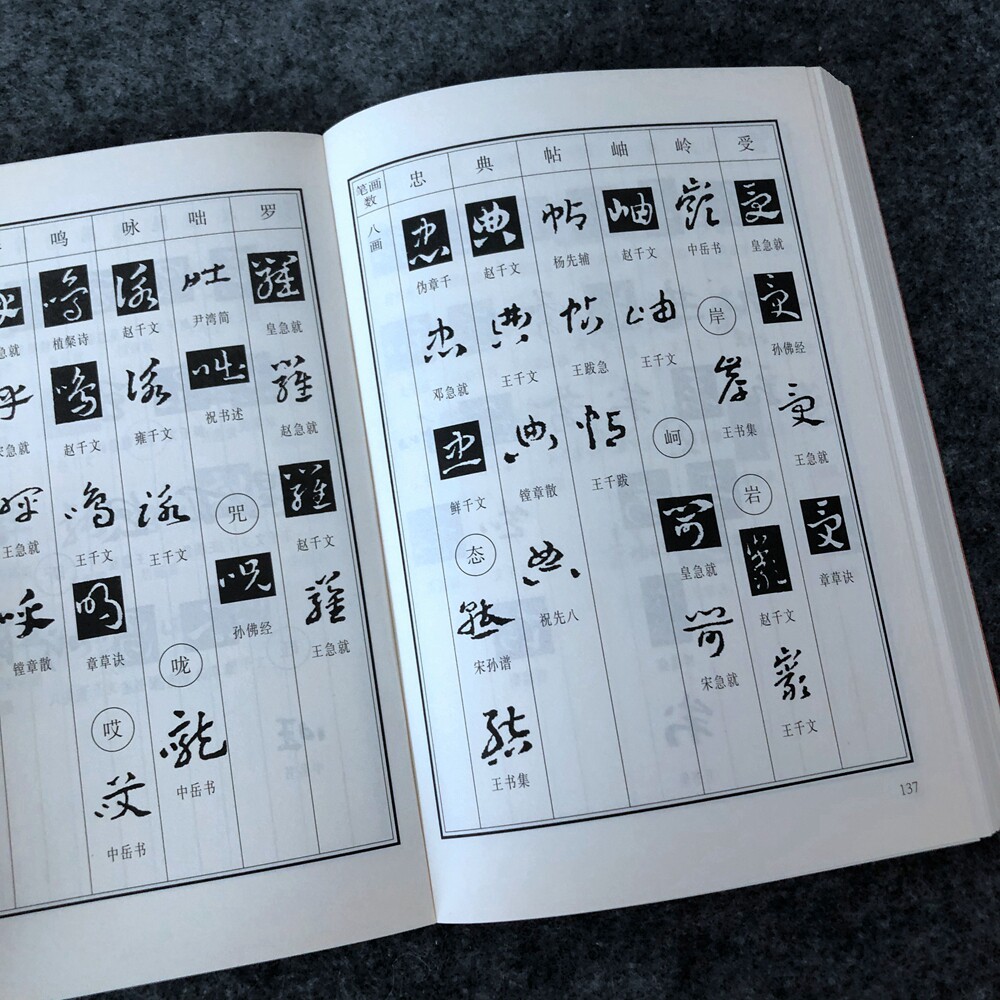 鸣 咏 咄 罗
急就 植粲诗 赵千文 尹湾简 皇急就
急就 赵千文 雍千文 祝书述 赵急就
王急就 王千文 王千文 咒 赵千文
镗章散 章草诀 孙佛经 王急就
哎 咙
中岳书 中岳书
笔画数 忠 典 帖 岫 岭 受
八画
伪章千 赵千文 杨先辅 赵千文 中岳书 皇急就
邓急就 王千文 王跋急 王千文 岸 孙佛经
鲜千文 镗章散 王千跋 岢 王书集 王急就
态 祝先八 皇急就 岩 章草诀
宋孙谱 宋急就 赵千文
王书集 王千文
137